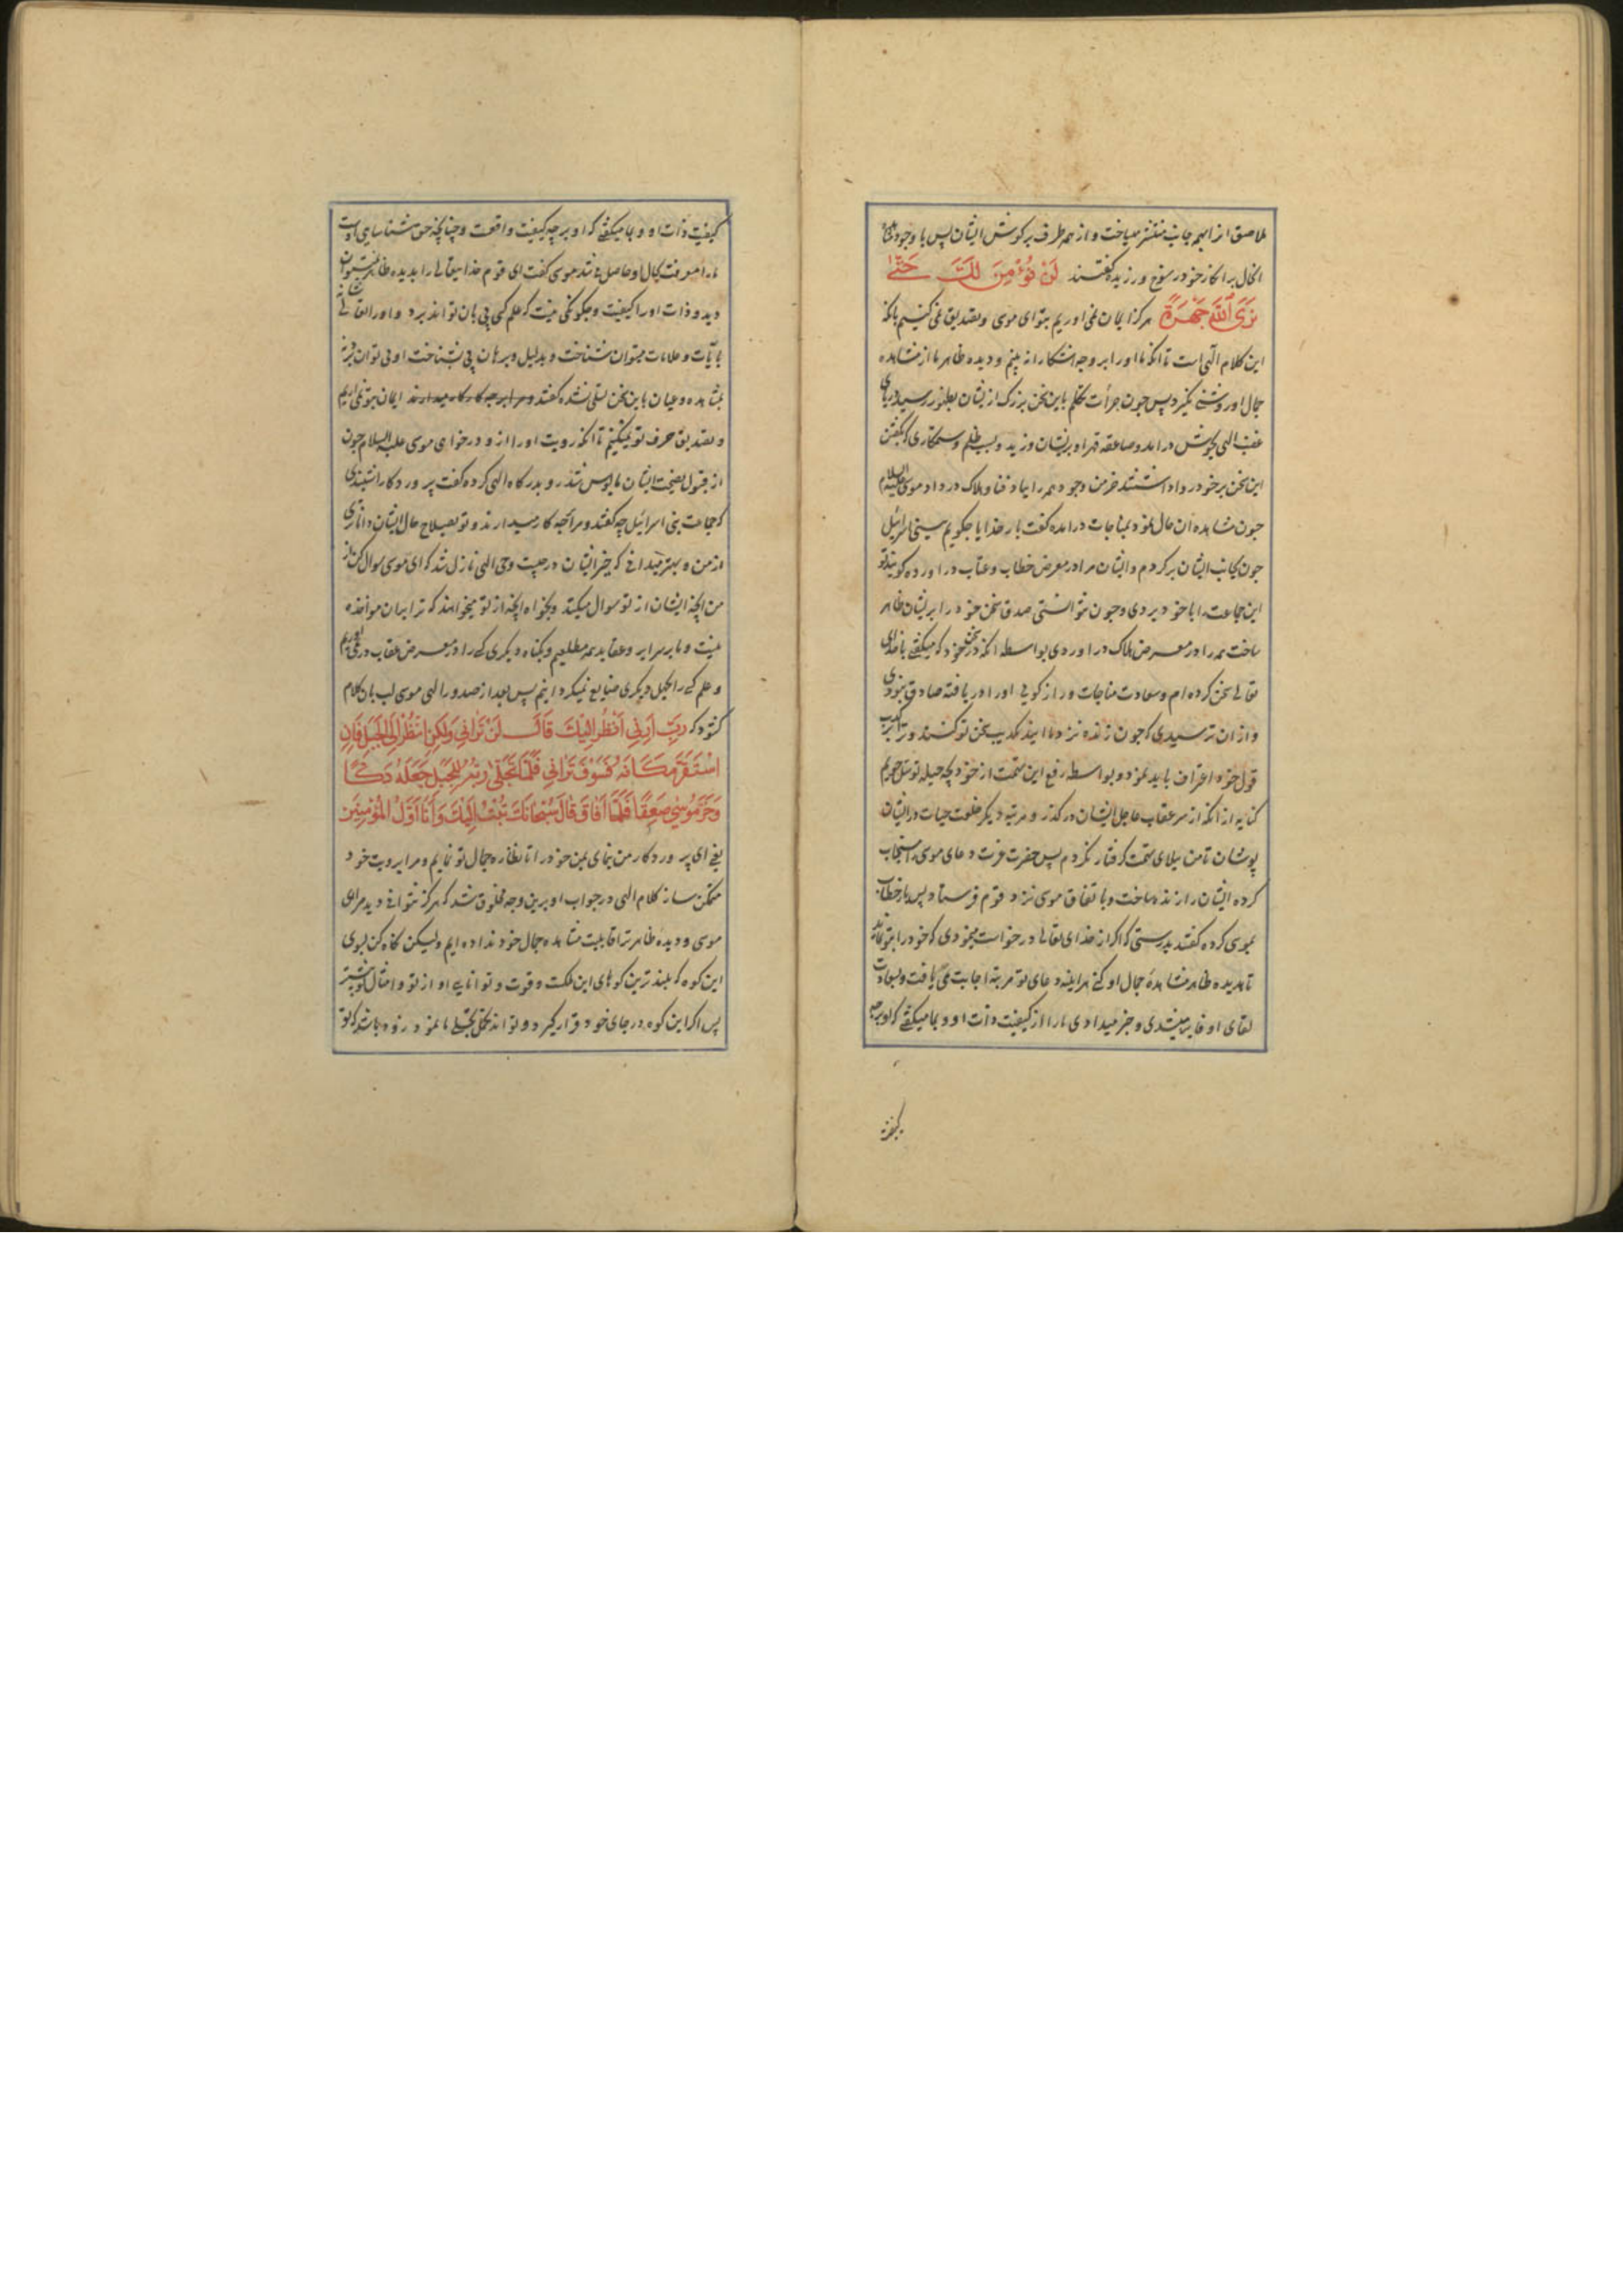 ملاصق از همه جانب منتشر میساخت و از همه طرف بر کوش ایشان پس با وجود
انحال بر انکار خود رسوخ ورزیده کفتند لَنْ نُؤْمِنَ لَكَ حَتّٰی
نَرَی اللّٰهَ جَهْرَةً هرکز ایمان نمی اوریم بتو ای موسی و تصدیق نمی کنیم بانکه
این کلام الهی است تا انکه ما او را بر وجه اشکارا نه بینیم و دیده ظاهر ما از مشاهده
جمال او روشنی نکیرد پس چون جرأت تکلم باین سخن بزرک ازیشان بظهور رسید دریای
غضب الهی بجوش درامد و صاعقه قهر او بریشان وزید و بسبب ظلم و ستمکاری که بکفتن
این سخن بر خود روا داشتند خرمن وجود همه را بباد فنا و هلاک در داد موسی علیه السلام
چون مشاهده آن حال نمود بمناجات درامده کفت بار خدایا چکویم ببنی اسرائیل
چون بجانب ایشان برکردم و ایشان مرا در معرض خطاب و عتاب دراورده کویند تو
این جماعت را با خود بردی و چون نتوانستی صدق سخن خود را بریشان ظاهر
ساخت همه را در معرض هلاک دراوردی بواسطه انکه در سخن خود که میکفتی با خدای
تعالی سخن کرده ام و سعادت مناجات و راز کویی او را دریافته صادق نبودی
و ازان ترسیدی که چون زنده نزد ما ایند تکذیب سخن تو کنند و ترا
قول خود اعتراف باید نمود و بواسطه رفع این تهمت از خود بچه حیله توسل جویم
کنایه از انکه از سر عقاب عاجل ایشان درکذر و مرتبه دیکر خلعت حیات در ایشان
پوشان تا من ببلای تهمت کرفتار نکردم پس حضرت عزت دعای موسی را مستجاب
کرده ایشان را زنده ساخت و باتفاق موسی نزد قوم فرستاد پس باز خطاب
بموسی کرده کفتند بدرستی که اکر از خدای تعالی درخواست مینمودی که خود را بتو نماید
تا بدیده ظاهر مشاهدهٔ جمال او کنی هراینه دعای تو مرتبه اجابت می یافت و بسعادت
لقای او فایز میشدی و خبر میدادی ما را از کیفیت ذات او و بما میکفتی که او بر چه
کیفیت
کیفیت ذات او و بما میکفتی که او بر چه کیفیت واقعست و چنانچه حق شناسایی اوست
ما را معرفت بحال او حاصل میشد موسی کفت ای قوم خدایتعالی را بدیده ظاهر نمیتوان
دید و ذات او را کیفیت و چکونکی نیست که علم کسی پی بان تواند برد و او را
بآیات و علامات میتوان شناخت و بدلیل و برهان پی بشناخت او می توان برد نه
بمشاهده و عیان باین سخن تسلی نشده کفتند ایمان بتو نمی اریم
و تصدیق حرف تو نمیکنیم تا انکه رویت او را ازو درخواهی موسی علیه السلام چون
از قبول نصیحت ایشان مایوس شد رو بدرکاه الهی کرده کفت پروردکارا شنیدی
که جماعت بنی اسرائیل چه کفتند و مرا بچه کار میدارند و تو بصلاح حال ایشان داناتری
از من و بهتر میدانی که خیر ایشان در چیست وحی الهی نازل شد که ای موسی سوال کن از
من انچه ایشان از تو سوال میکنند و بخواه انچه از تو میخواهند که ترا بران مواخذه
نیست و ما بر سرایر و عقاید همه مطلعیم و بکناه دیکری کسی را در معرض عقاب در نمی اوریم
و علم کسی را بجهل دیکری ضایع نمیکردانیم پس بعد از صدور الهی موسی لب بان کلام
کشود که رَبِّ أَرِنِی أَنْظُرْ إِلَیْكَ قَالَ لَنْ تَرَانِی وَلٰکِنِ انْظُرْ إِلَی الْجَبَلِ فَإِنِ
اسْتَقَرَّ مَکَانَهُ فَسَوْفَ تَرَانِی فَلَمَّا تَجَلّٰی رَبُّهُ لِلْجَبَلِ جَعَلَهُ دَکًّا
وَخَرَّ مُوسٰی صَعِقًا فَلَمَّا أَفَاقَ قَالَ سُبْحَانَكَ تُبْتُ إِلَیْكَ وَأَنَا أَوَّلُ الْمُؤْمِنِینَ
یعنی ای پروردکار من بنمای بمن خود را تا نظاره جمال تو نمایم و مرا برویت خود
متمکن ساز کلام الهی در جواب او برین وجه مخلوق شد که هرکز نتوانی دید مرا ای
موسی و دیده ظاهر ترا قابلیت مشاهده جمال خود نداده ایم ولیکن نکاه کن بسوی
این کوه که بلندترین کوهای این ملکست و قوت و توانایی او از تو و امثال تو بیشتر
پس اکر این کوه در جای خود قرار کیرد و تواند تحمل تجلی ما نمود زود باشد که تو